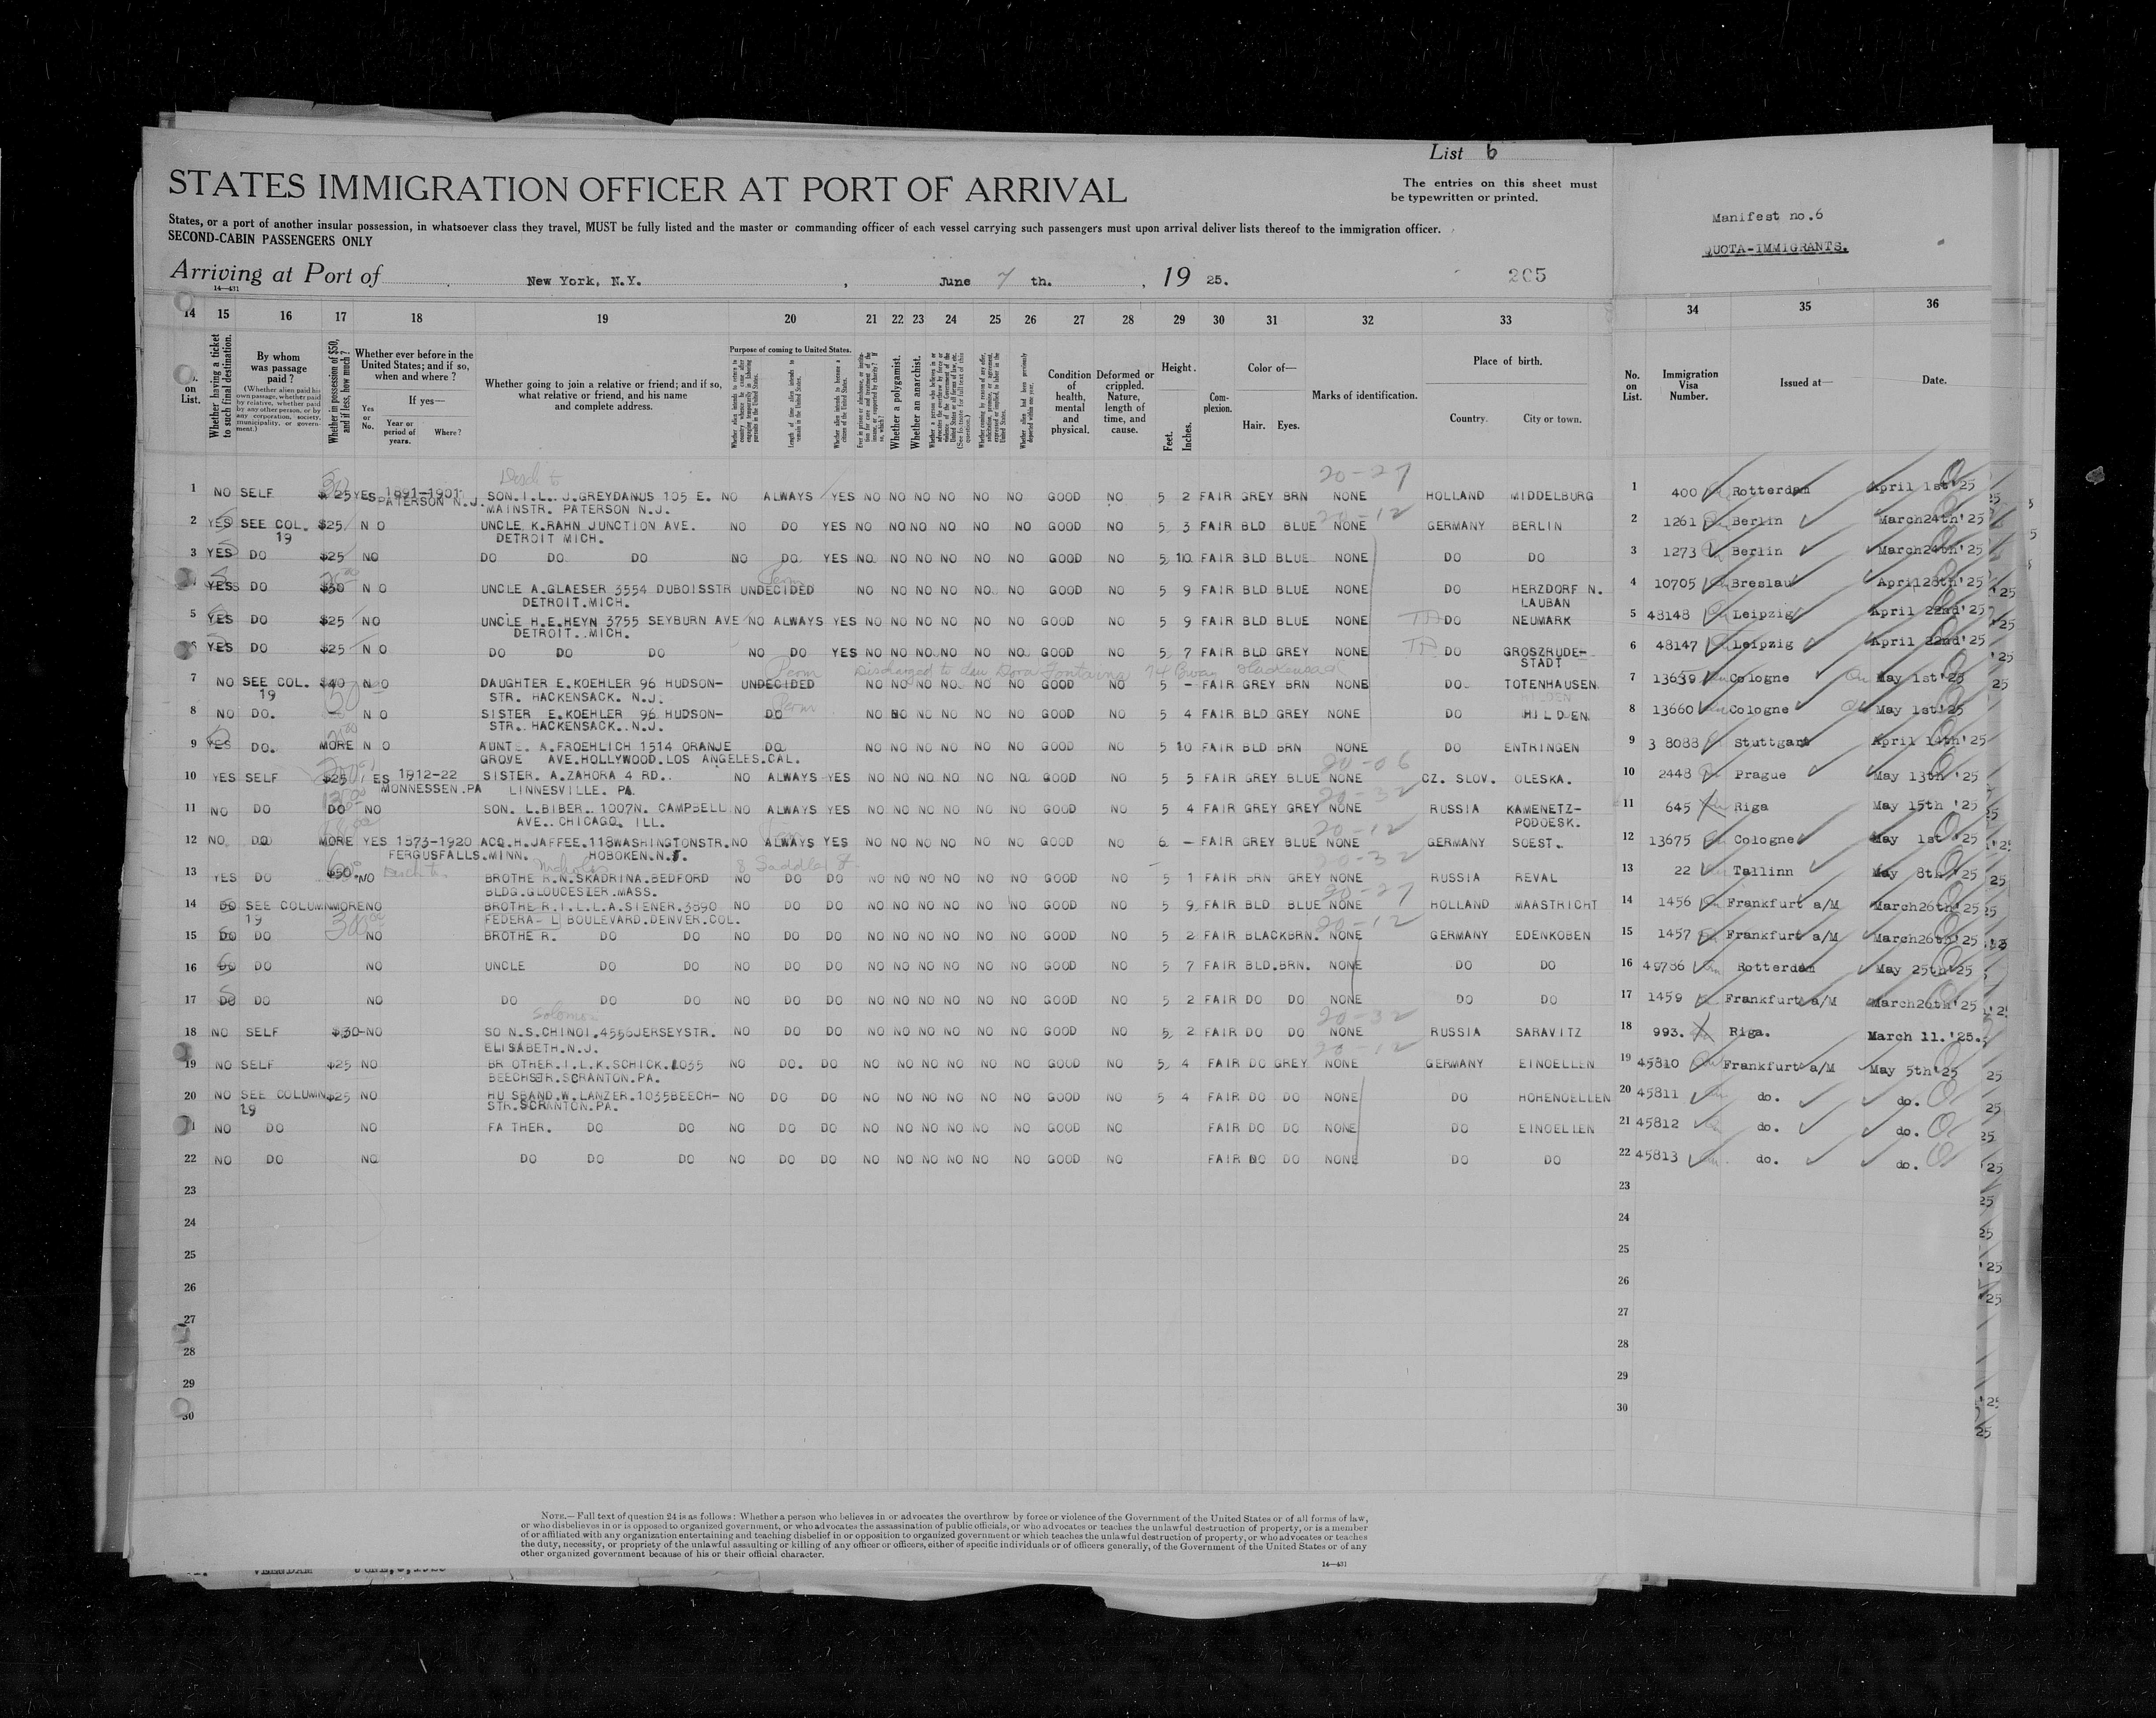 List 6
STATES IMMIGRATION OFFICER AT PORT OF ARRIVAL
The entries on this sheet must
be typewritten or printed.
States, or a port of another insular possession, in whatsoever class they travel, MUST be fully listed and the master or commanding officer of each vessel carrying such passengers must upon arrival deliver lists thereof to the immigration officer.
SECOND-CABIN PASSENGERS ONLY
Manifest no.6
QUOTA-IMMIGRANTS.
Arriving at Port of New York, N.Y. , June 7 th. , 19 25. 205
14—431
14 15 16 17 18 19 20 21 22 23 24 25 26 27 28 29 30 31 32 33 34 35 36
on List.
Whether having a ticket to such final destination.
By whom was passage paid?
(Whether alien paid his own passage, whether paid by relative, whether paid by any other person, or by any corporation, society, municipality, or government.)
Whether in possession of $50, and if less, how much?
Whether ever before in the United States; and if so, when and where?
Yes or No.
If yes—
Year or period of years.
Where?
Whether going to join a relative or friend; and if so, what relative or friend, and his name and complete address.
Purpose of coming to United States.
Length of time alien intends to remain in the United States.
Whether alien intends to become a citizen of the United States.
Whether a polygamist.
Whether an anarchist.
Condition of health, mental and physical.
Deformed or crippled. Nature, length of time, and cause.
Height.
Feet. Inches.
Complexion.
Color of—
Hair. Eyes.
Marks of identification.
Place of birth.
Country. City or town.
No. on List.
Immigration Visa Number.
Issued at—
Date.
Disch to 20-27
1 NO SELF $25 YES 1891-1901 SON.I.L. J.GREYDANUS 105 E. NO ALWAYS YES NO NO NO NO NO NO GOOD NO 5 2 FAIR GREY BRN NONE HOLLAND MIDDELBURG 1 400 Rotterdam April 1st'25
PATERSON N.J. MAINSTR. PATERSON N.J.
20-12
2 YES SEE COL. $25 NO UNCLE K.RAHN JUNCTION AVE. NO DO YES NO NO NO NO NO NO GOOD NO 5 3 FAIR BLD BLUE NONE GERMANY BERLIN 2 1261 Berlin March24th'25
19 DETROIT MICH.
3 YES DO $25 NO DO DO DO NO DO YES NO NO NO NO NO NO GOOD NO 5 10 FAIR BLD BLUE NONE DO DO 3 1273 Berlin March24th'25
Perm
4 YES DO $30 NO UNCLE A.GLAESER 3554 DUBOISSTR UNDECIDED NO NO NO NO NO NO GOOD NO 5 9 FAIR BLD BLUE NONE DO HERZDORF N. 4 10705 Breslau April28th'25
DETROIT.MICH. LAUBAN
5 YES DO $25 NO UNCLE H.E.HEYN 3755 SEYBURN AVE NO ALWAYS YES NO NO NO NO NO NO GOOD NO 5 9 FAIR BLD BLUE NONE DO NEUMARK 5 48148 Leipzig April 22nd'25
DETROIT. MICH.
6 YES DO $25 NO DO DO DO NO DO YES NO NO NO NO NO NO GOOD NO 5 7 FAIR BLD GREY NONE DO GROSZRUDE- 6 48147 Leipzig April 22nd'25
STADT
Perm Discharged to dau Dora Fontaine Hackensack
7 NO SEE COL. $40 NO DAUGHTER E.KOEHLER 96 HUDSON- UNDECIDED NO NO NO NO NO NO GOOD NO 5 - FAIR GREY BRN NONE DO TOTENHAUSEN 7 13659 Cologne May 1st'25
19 STR. HACKENSACK. N.J.
Perm
8 NO DO. NO SISTER E.KOEHLER 96 HUDSON- DO NO NO NO NO NO NO GOOD NO 5 4 FAIR BLD GREY NONE DO HILDEN 8 13660 Cologne May 1st'25
STR. HACKENSACK. N.J.
9 YES DO. MORE NO AUNT. A.FROEHLICH 1514 ORANJE DO NO NO NO NO NO NO GOOD NO 5 10 FAIR BLD BRN NONE DO ENTRINGEN 9 3 8088 Stuttgart April 14th'25
GROVE AVE.HOLLYWOOD.LOS ANGELES.CAL.
20-06
10 YES SELF $25 YES 1912-22 SISTER. A.ZAHORA 4 RD.. NO ALWAYS YES NO NO NO NO NO NO GOOD NO 5 5 FAIR GREY BLUE NONE CZ. SLOV. OLESKA. 10 2448 Prague May 13th '25
MONNESSEN.PA LINNESVILLE. PA.
20-32
11 NO DO DO NO SON. L.BIBER. 1007N. CAMPBELL NO ALWAYS YES NO NO NO NO NO NO GOOD NO 5 4 FAIR GREY GREY NONE RUSSIA KAMENETZ- 11 645 Riga May 15th '25
AVE. CHICAGO. ILL. PODOESK.
20-12
12 NO. DO MORE YES 1873-1920 ACQ.H.JAFFEE.118WASHINGTONSTR. NO ALWAYS YES NO NO NO NO NO NO GOOD NO 6 - FAIR GREY BLUE NONE GERMANY SOEST. 12 13675 Cologne May 1st '25
FERGUSFALLS.MINN. HOBOKEN.N.J.
Disch to Nicholas 8 Saddler St. 20-32
13 YES DO $50. NO BROTHE R.N.SKADRINA.BEDFORD NO DO DO NO NO NO NO NO NO GOOD NO 5 1 FAIR BRN GREY NONE RUSSIA REVAL 13 22 Tallinn May 8th '25
BLDG.GLOUCESTER.MASS.
20-27
14 DO SEE COLUMN MORE NO BROTHE R.I.L.L.A.STENER.3890 NO DO DO NO NO NO NO NO NO GOOD NO 5 9 FAIR BLD BLUE NONE HOLLAND MAASTRICHT 14 1456 Frankfurt a/M March26th'25
19 FEDERA-L BOULEVARD.DENVER.COL.
20-12
15 DO DO NO BROTHE R. DO DO NO DO DO NO NO NO NO NO NO GOOD NO 5 2 FAIR BLACK BRN. NONE GERMANY EDENKOBEN 15 1457 Frankfurt a/M March26th'25
16 DO DO NO UNCLE DO DO NO DO DO NO NO NO NO NO NO GOOD NO 5 7 FAIR BLD.BRN. NONE DO DO 16 49786 Rotterdam May 25th'25
17 DO DO NO DO DO DO NO DO DO NO NO NO NO NO NO GOOD NO 5 2 FAIR DO DO NONE DO DO 17 1459 Frankfurt a/M March26th'25
Solomon 20-32
18 NO SELF $30- NO SO N.S.CHINOI.4556JERSEYSTR. NO DO DO NO NO NO NO NO NO GOOD NO 5 2 FAIR DO DO NONE RUSSIA SARAVITZ 18 993. Riga. March 11.'25.
ELISABETH.N.J.
20-12
19 NO SELF $25 NO BR OTHER.I.L.K.SCHICK.1035 NO DO. DO NO NO NO NO NO NO GOOD NO 5 4 FAIR DO GREY NONE GERMANY EINOELLEN 19 45810 Frankfurt a/M May 5th'25
BEECHSTR.SCRANTON.PA.
20 NO SEE COLUMN $25 NO HU SBAND.W.LANZER.1035BEECH- NO DO DO NO NO NO NO NO NO GOOD NO 5 4 FAIR DO DO NONE DO HOHENOELLEN 20 45811 do. do.
19 STR.SCRANTON.PA.
21 NO DO NO FA THER. DO DO NO DO DO NO NO NO NO NO NO GOOD NO FAIR DO DO NONE DO EINOELLEN 21 45812 do. do.
22 NO DO NO DO DO DO NO DO DO NO NO NO NO NO NO GOOD NO FAIR DO DO NONE DO DO 22 45813 do. do.
23 23
24 24
25 25
26 26
27 27
28 28
29 29
30 30
NOTE.—Full text of question 24 is as follows: Whether a person who believes in or advocates the overthrow by force or violence of the Government of the United States or of all forms of law,
or who disbelieves in or is opposed to organized government, or who advocates the assassination of public officials, or who advocates or teaches the unlawful destruction of property, or is a member
of or affiliated with any organization entertaining and teaching disbelief in or opposition to organized government or which teaches the unlawful destruction of property, or who advocates or teaches
the duty, necessity, or propriety of the unlawful assaulting or killing of any officer or officers, either of specific individuals or of officers generally, of the Government of the United States or of any
other organized government because of his or their official character.
14—431